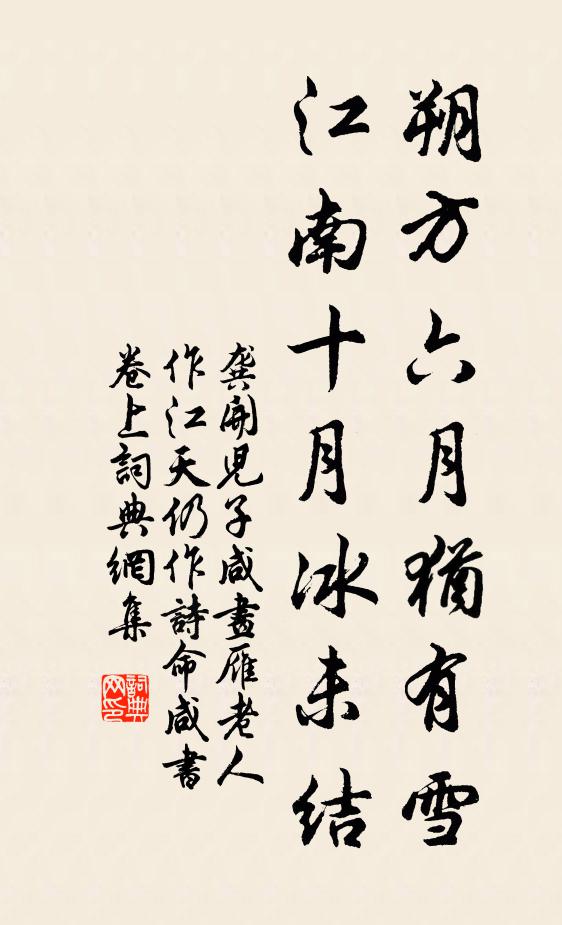 朔方六月猶有雪
江南十月冰未結
龔開兒子咸畫雁老人
作江天仍作詩命咸書
卷上詞典網集
詞典
网印